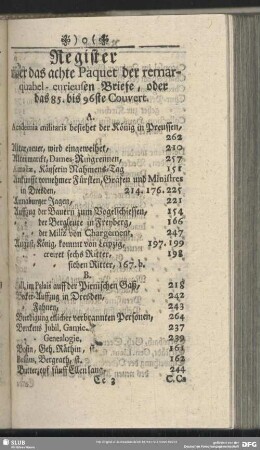 ❧) o (☙
Register
über das achte Paquet der remar-
quabel-curieusen Briefe, oder
das 85. bis 96ste Couvert.
A.
Academia militaris besiehet der König in Preussen,
262
Altar, neuer, wird eingeweihet, 210
Dames-Ringrennen, 257
Käuserin Nahmens-Tag 151
Ankunfft vornehmer Fürsten, Grafen und Ministres
in Dresden, 214. 176. 225
Annaburger Jagen, 221
Auffzug der Bauern zum Vogelschiessen, 154
der Bergleute in Freyberg, 166
der Miliz von Chargement, 247
König, kommt von Leipzig, 197. 199
creiret sechs Ritter, 198
sieben Ritter, 167. b.
B.
Ball, im Palais auff der Pirnischen Gaß, 218
Becker-Auffzug in Dresden, 242
Fahnen, 243
Beerdigung etlicher verbrannten Personen, 264
Jubil. 237
Genealogie, 239
Geh. Räthin, st. 161
Bergrath, st. 162
Butterzopf zwölff Ellen lang, 244
Ee 3 C. Ca
SLUB
DFG